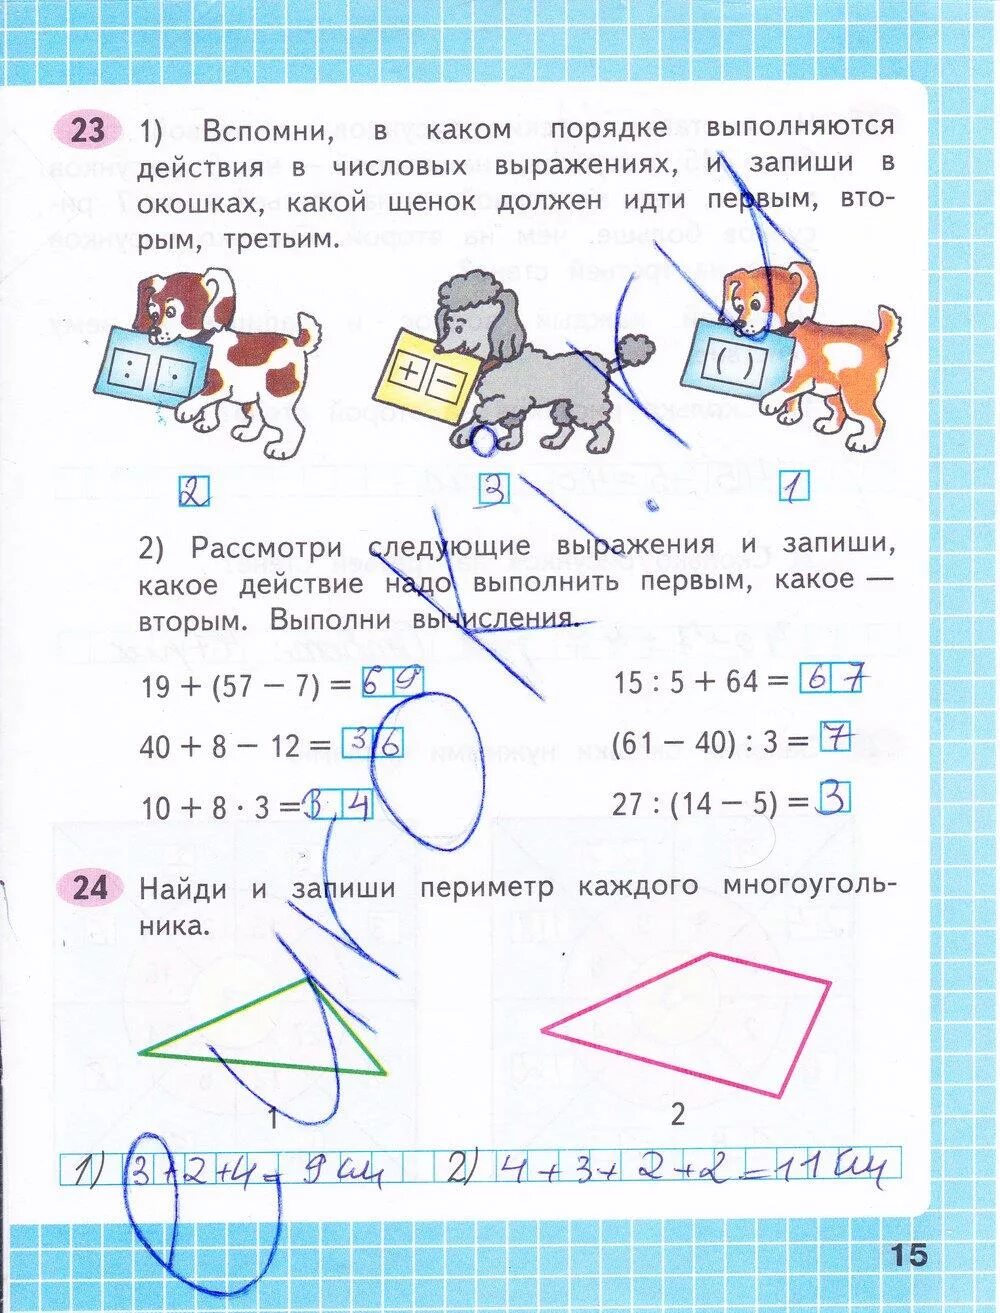 23 1) Вспомни, в каком порядке выполняются
действия в числовых выражениях, и запиши в
окошках, какой щенок должен идти первым, вто-
рым, третьим.
: · + − ( )
2 3 1
2) Рассмотри следующие выражения и запиши,
какое действие надо выполнить первым, какое —
вторым. Выполни вычисления.
19 + (57 − 7) = 69 15 : 5 + 64 = 67
40 + 8 − 12 = 36 (61 − 40) : 3 = 7
10 + 8 · 3 = 34 27 : (14 − 5) = 3
24 Найди и запиши периметр каждого многоуголь-
ника.
1 2
1) 3+2+4= 9 см 2) 4+3+2+2=11 см
15